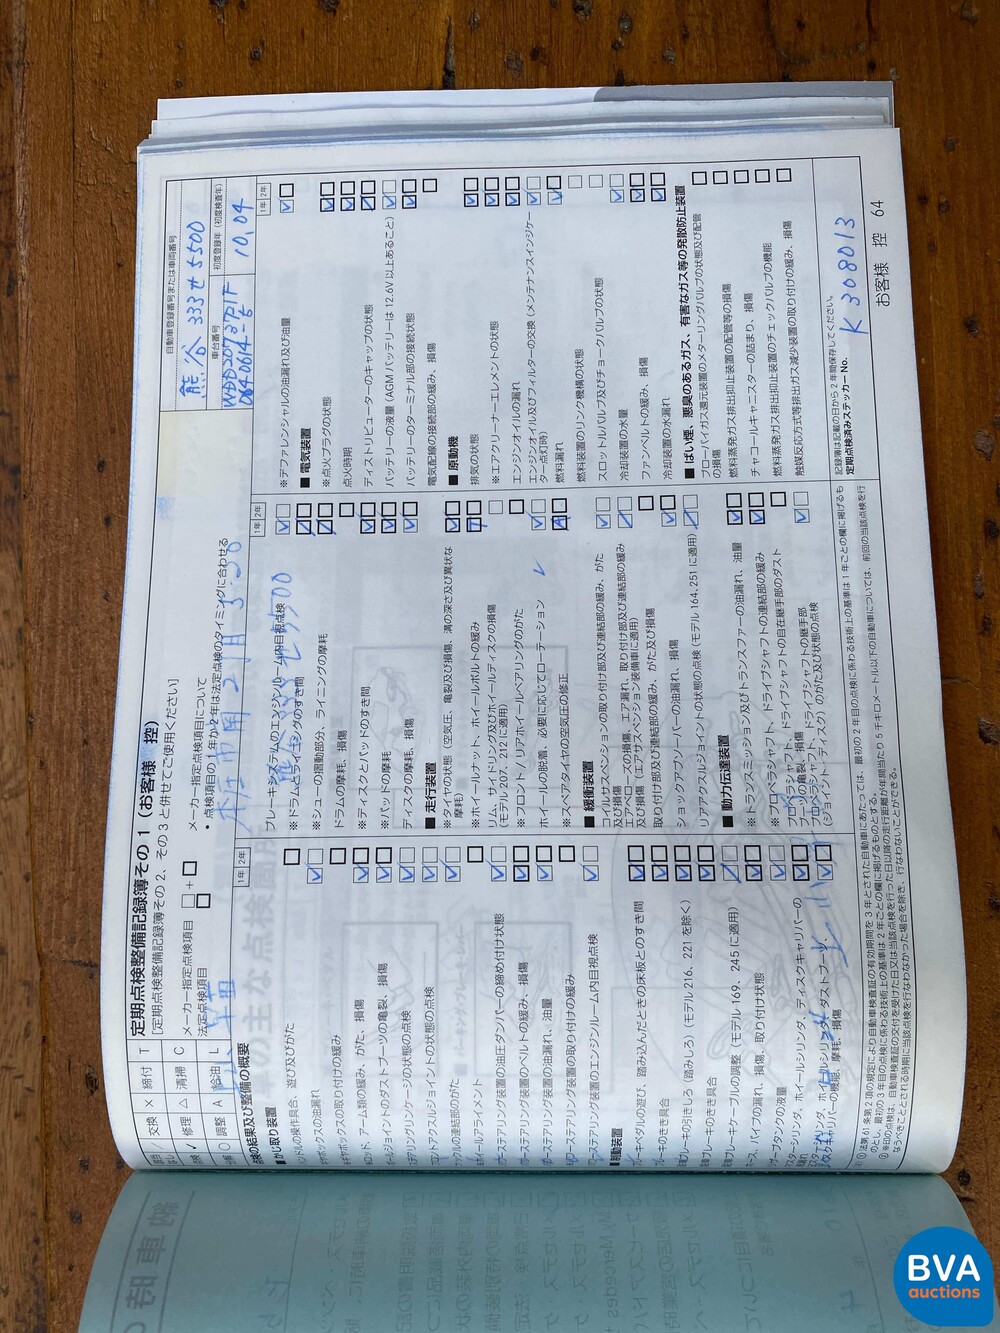 定期点検整備記録簿その1(お客様 控)
[定期点検整備記録簿その2、その3と併せてご使用ください]
メーカー指定点検項目
法定点検項目
メーカー指定点検項目について
・点検項目の1年か2年は法定点検のタイミングに合わせる
交換 × 締付 T
修理 △ 清掃 C
調整 A 給油 L
自動車登録番号または車両番号
熊谷 333 せ 5500
車台番号
初度登録年(初度検査年)
WDD2073731F
10,04
の結果及び整備の概要
1年 2年
かじ取り装置
ドルの操作具合、遊び及びがた
ヤボックスの油漏れ
ヤボックスの取り付けの緩み
ロッド、アーム類の緩み、がた、損傷
ールジョイントのダストブーツの亀裂、損傷
テアリングリンケージの状態の点検
ロントアクスルジョイントの状態の点検
ックルの連結部のがた
イールアライメント
ワーステアリング装置の油圧ダンパーの締め付け状態
ワーステアリング装置のベルトの緩み、損傷
ワーステアリング装置の油漏れ、油量
ワーステアリング装置の取り付けの緩み
ワーステアリング装置のエンジンルーム内目視点検
制動装置
ーキペダルの遊び、踏み込んだときの床板とのすき間
ーキのきき具合
ブレーキの引きしろ(踏みしろ)(モデル 216、221 を除く)
ブレーキのきき具合
ブレーキケーブルの調整(モデル 169、245 に適用)
ース、パイプの漏れ、損傷、取り付け状態
ザーブタンクの液量
スターシリンダ、ホイールシリンダ、ディスクキャリパーの
ャリパーの機能、摩耗、損傷
1年 2年
ブレーキシステムのエンジンルーム内目視点検
※ドラムとライニングのすき間
※シューの摺動部分、ライニングの摩耗
ドラムの摩耗、損傷
※ディスクとパッドのすき間
※パッドの摩耗
ディスクの摩耗、損傷
■ 走行装置
※タイヤの状態(空気圧、亀裂及び損傷、溝の深さ及び異状な
摩耗)
※ホイールナット、ホイールボルトの緩み
リム、サイドリング及びホイールディスクの損傷
(モデル 207、212 に適用)
※フロント/リアホイールベアリングのがた
ホイールの脱着、必要に応じてローテーション
※スペアタイヤの空気圧の修正
■ 緩衝装置
コイルサスペンションの取り付け部及び連結部の緩み、がた
及び損傷
エアベローズの損傷、エア漏れ、取り付け部及び連結部の緩み
及び損傷(エアサスペンション装備車に適用)
取り付け部及び連結部の緩み、がた及び損傷
ショックアブソーバーの油漏れ、損傷
リアアクスルジョイントの状態の点検(モデル 164、251 に適用)
■ 動力伝達装置
※トランスミッション及びトランスファーの油漏れ、油量
※プロペラシャフト、ドライブシャフトの連結部の緩み
プロペラシャフト、ドライブシャフトの自在継手部のダスト
ブーツの亀裂、損傷
プロペラシャフト、ドライブシャフトの継手部
(ジョイントディスク)のがた及び状態の点検
1年 2年
※デファレンシャルの油漏れ及び油量
■ 電気装置
※点火プラグの状態
点火時期
ディストリビューターのキャップの状態
バッテリーの液量(AGM バッテリーは 12.6V 以上あること)
バッテリーのターミナル部の接続状態
電気配線の接続部の緩み、損傷
■ 原動機
排気の状態
※エアクリーナーエレメントの状態
エンジンオイルの漏れ
エンジンオイル及びフィルターの交換(メンテナンスインジケー
ター点灯時)
燃料漏れ
燃料装置のリンク機構の状態
スロットルバルブ及びチョークバルブの状態
冷却装置の水量
ファンベルトの緩み、損傷
冷却装置の水漏れ
■ ばい煙、悪臭のあるガス、有害なガス等の発散防止装置
ブローバイガス還元装置のメターリングバルブの状態及び配管
の損傷
燃料蒸発ガス排出抑止装置の配管等の損傷
チャコールキャニスターの詰まり、損傷
燃料蒸発ガス排出抑止装置のチェックバルブの機能
触媒反応方式等排出ガス減少装置の取り付けの緩み、損傷
記録簿は記載の日から 2 年間保存してください。
定期点検済みステッカー No.
K 308013
お客様 控 64
BVA
auctions